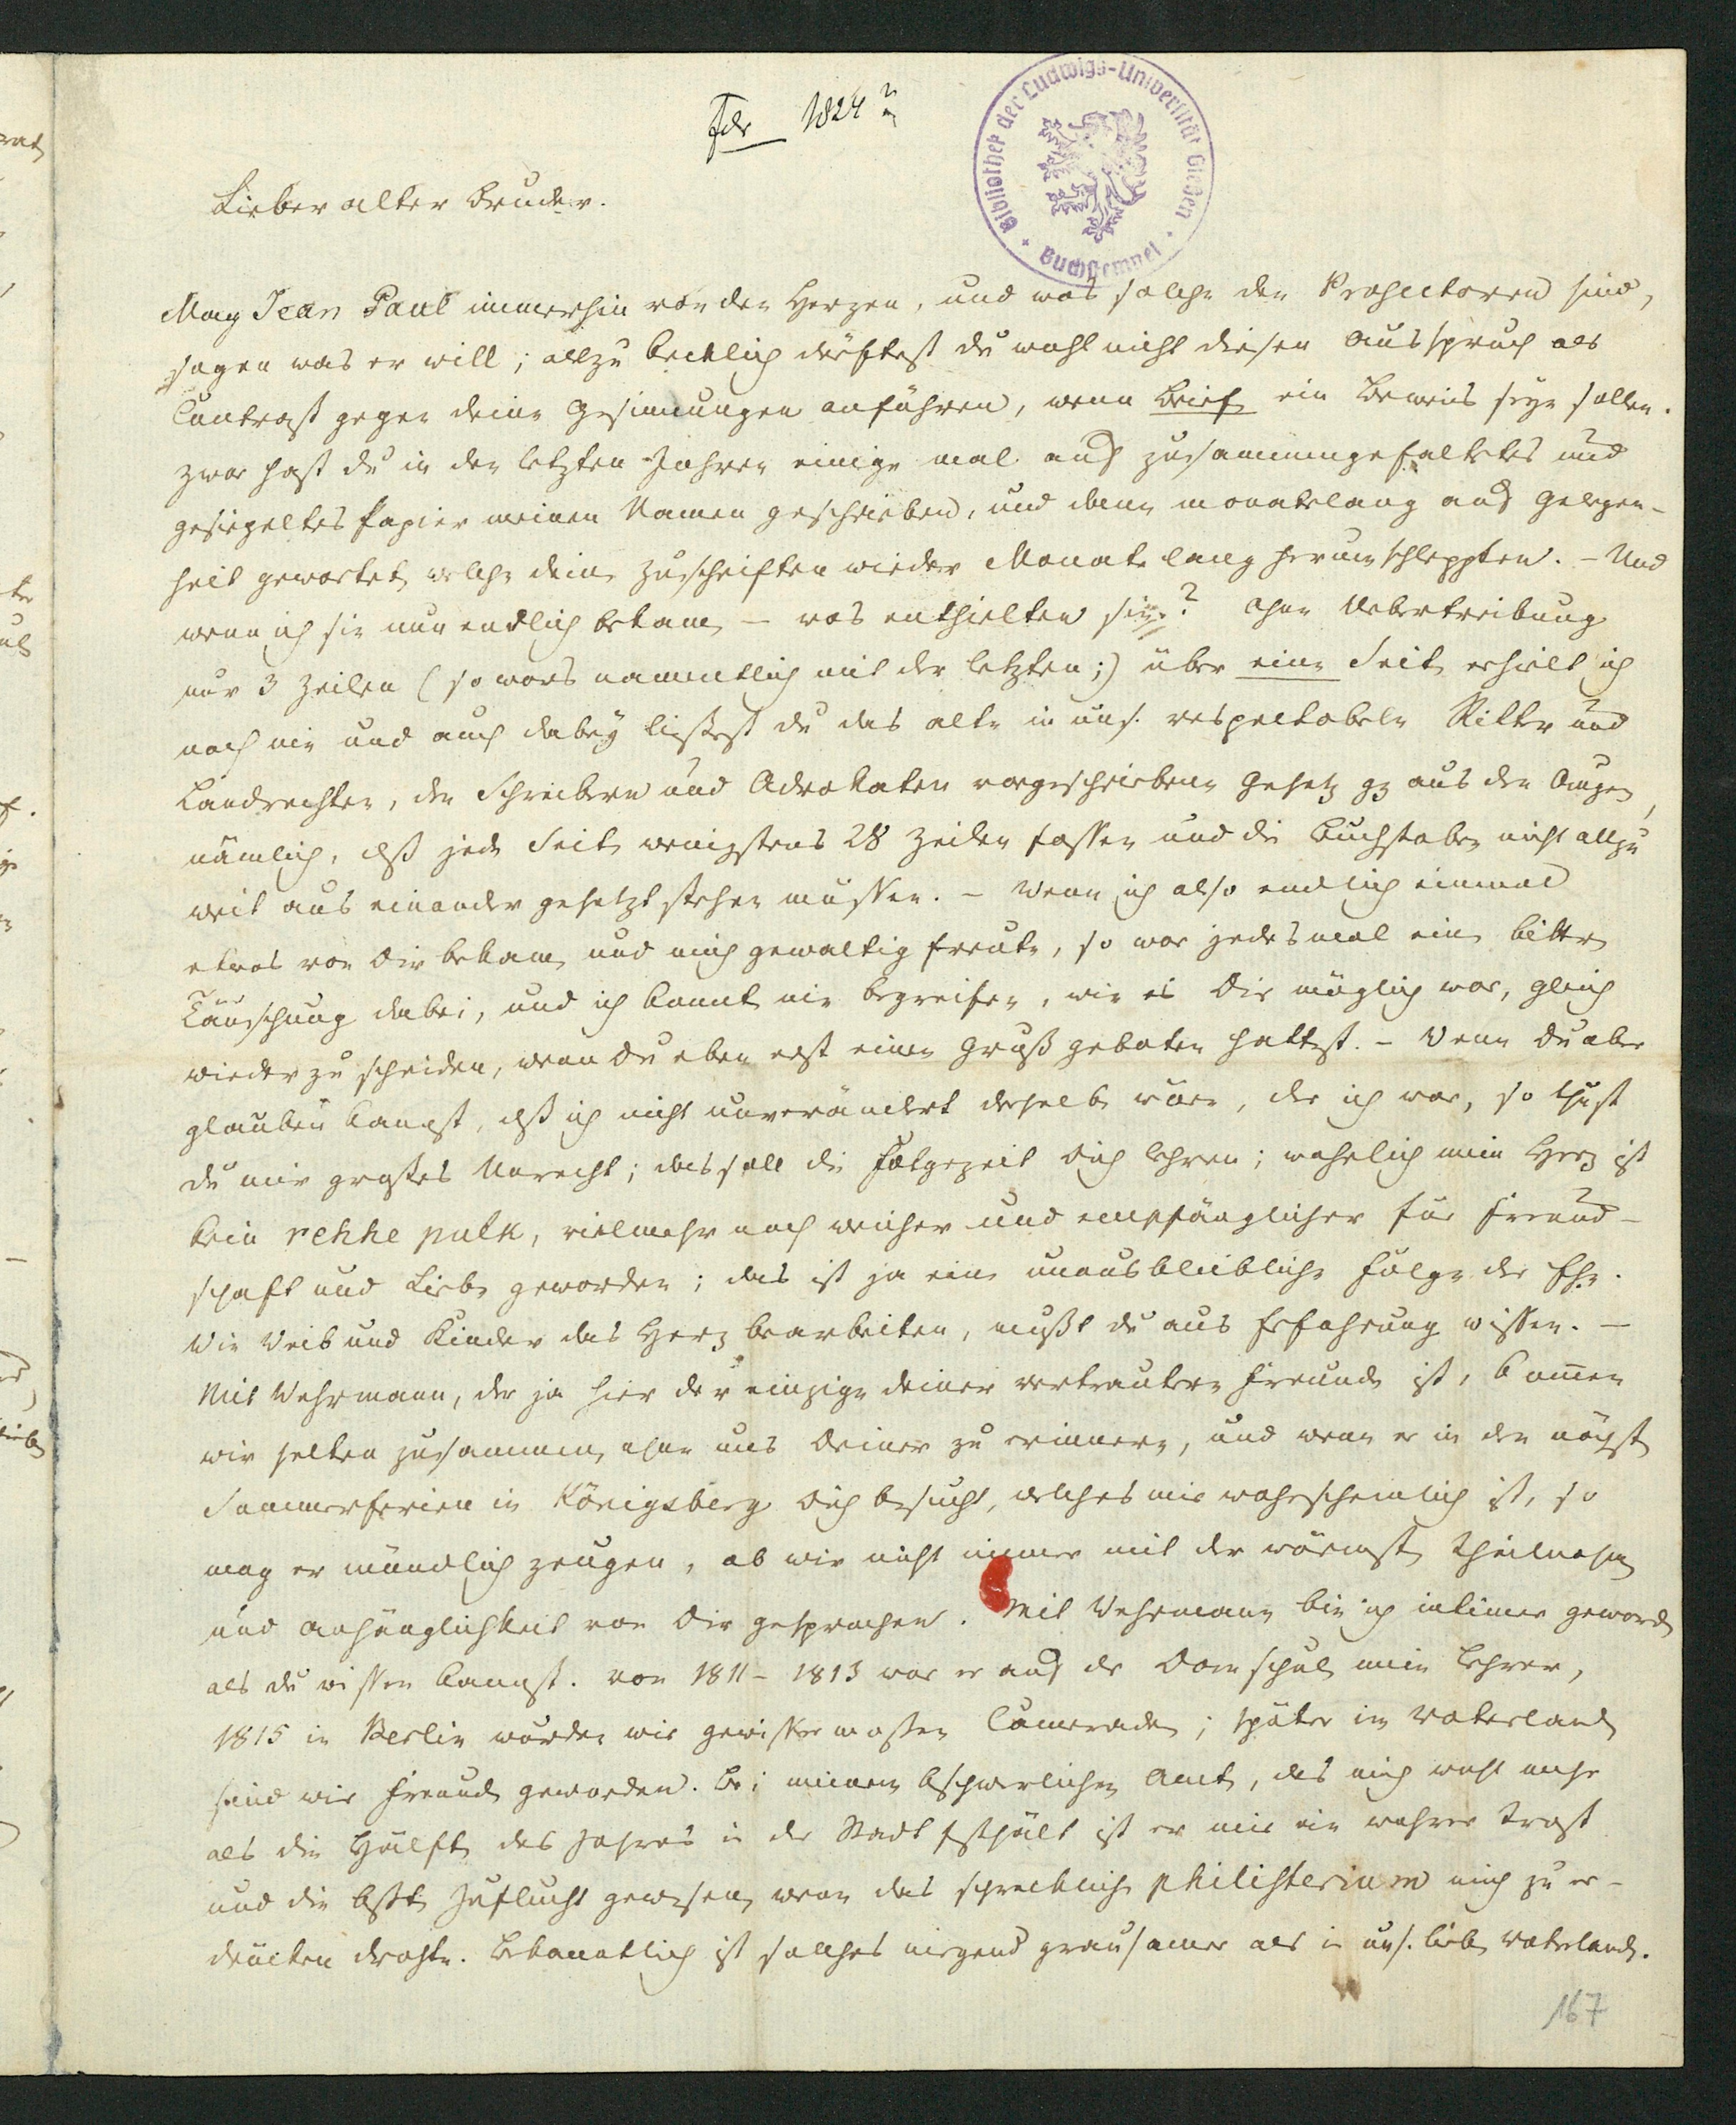 Febr 1824?
Bibliothek der Ludwigs-Universität Gießen
Lieber alter Bruder.
Mag Jean Paul immerhin von den Herzen, und was solche den Prosectoren sind,
sagen was er will; allzu kecklich dürftest du wohl nicht diesen Ausspruch als
Contrast gegen deine Gesinnungen anführen, wenn Briefe ein Beweis seyn sollen.
Zwar hast du in den letzten Jahren einige mal auf zusammengefaltetes und
gesiegeltes Papier meinen Namen geschrieben, und dann monatelang auf Gelegen-
heit gewartet, welche deine Zuschriften wieder Monate lang herumschleppten. – Und
wenn ich sie nun endlich bekam – was enthielten sie? Ohne Uebertreibung
nur 3 Zeilen (so wars namentlich mit der letzten;) über eine Seite erhielt ich
noch nie und auch dabey ließest du das alte in uns. respectabeln Ritter und
Landrechten, den Schreibern und Advokaten vorgeschriebene Gesetz gz aus den Augen,
nämlich, daß jede Seite wenigstens 28 Zeilen fassen und die Buchstaben nicht allzu
weit aus einander gesetzt stehen müssen. – Wenn ich also endlich einmal
etwas von Dir bekam, und mich gewaltig freute, so war jedesmal eine bittre
Täuschung dabei, und ich konnte nie begreifen, wie es Dir möglich war, gleich
wieder zu scheiden, wenn Du eben erst einen Gruß geboten hattest. – Wenn Du aber
glauben kannst, daß ich nicht unverändert derselbe wäre, der ich war, so thust
du mir großes Unrecht; das soll die Folgezeit Dich lehren; wahrlich mein Herz ist
kein rehhe pulk, vielmehr noch weicher und empfänglicher für Freund-
schaft und Liebe geworden; das ist ja eine unausbleibliche Folge der Ehe.
Wie Weib und Kinder das Herz bearbeiten, mußt du aus Erfahrung wissen. –
Mit Wehrmann, der ja hier der einzige deiner vertrautern Freunde ist, kommen
wir selten zusammen, ohne uns Deiner zu erinnern, und wenn er in den nächst
Sommerferien in Königsberg Dich besucht, welches mir wahrscheinlich ist, so
mag er mündlich zeugen, ob wir nicht immer mit der wärmsten Theilnahme
und Anhänglichkeit von Dir gesprochen. Mit Wehrmann bin ich intimer geworden
als du wissen kannst. Von 1811 – 1813 war er auf der Domschule mein Lehrer,
1815 in Berlin wurden wir gewissermaßen Cameraden; später im Vaterlande
sind wir Freunde geworden. Bei meinem beschwerlichen Amt, das mich wohl mehr
als die Hälfte des Jahres in der Stadt festhält ist er mir ein wahrer Trost
und die beste Zuflucht gewesen, wenn das schreckliche philisterium mich zu er-
drücken drohte. Bekanntlich ist solches nirgend grausamer als in uns. lieben Vaterlande.
167